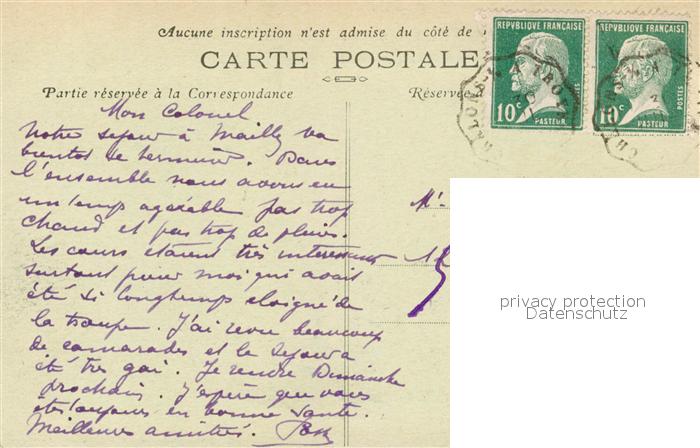 Aucune inscription n'est admise du côté de
CARTE POSTALE
Partie réservée à la Correspondance
Réservée
REPVBLIQUE FRANÇAISE
10c
PASTEUR
REPVBLIQUE FRANÇAISE
10c
PASTEUR
Mon Colonel
Notre sejour à Mailly va
bientot se terminer. Dans
l'ensemble nous avons eu
un temps agréable pas trop
chaud et pas trop de pluies.
Les cours etaient très interessants
surtout pour moi qui avait
été si longtemps eloigné de
la troupe. J'ai revu beaucoup
de camarades et le sejour a
été très gai. Je rentre Dimanche
prochain. J'espère que vous
êtes toujours en bonne santé.
Meilleures amitiés.
Mr
privacy protection
Datenschutz